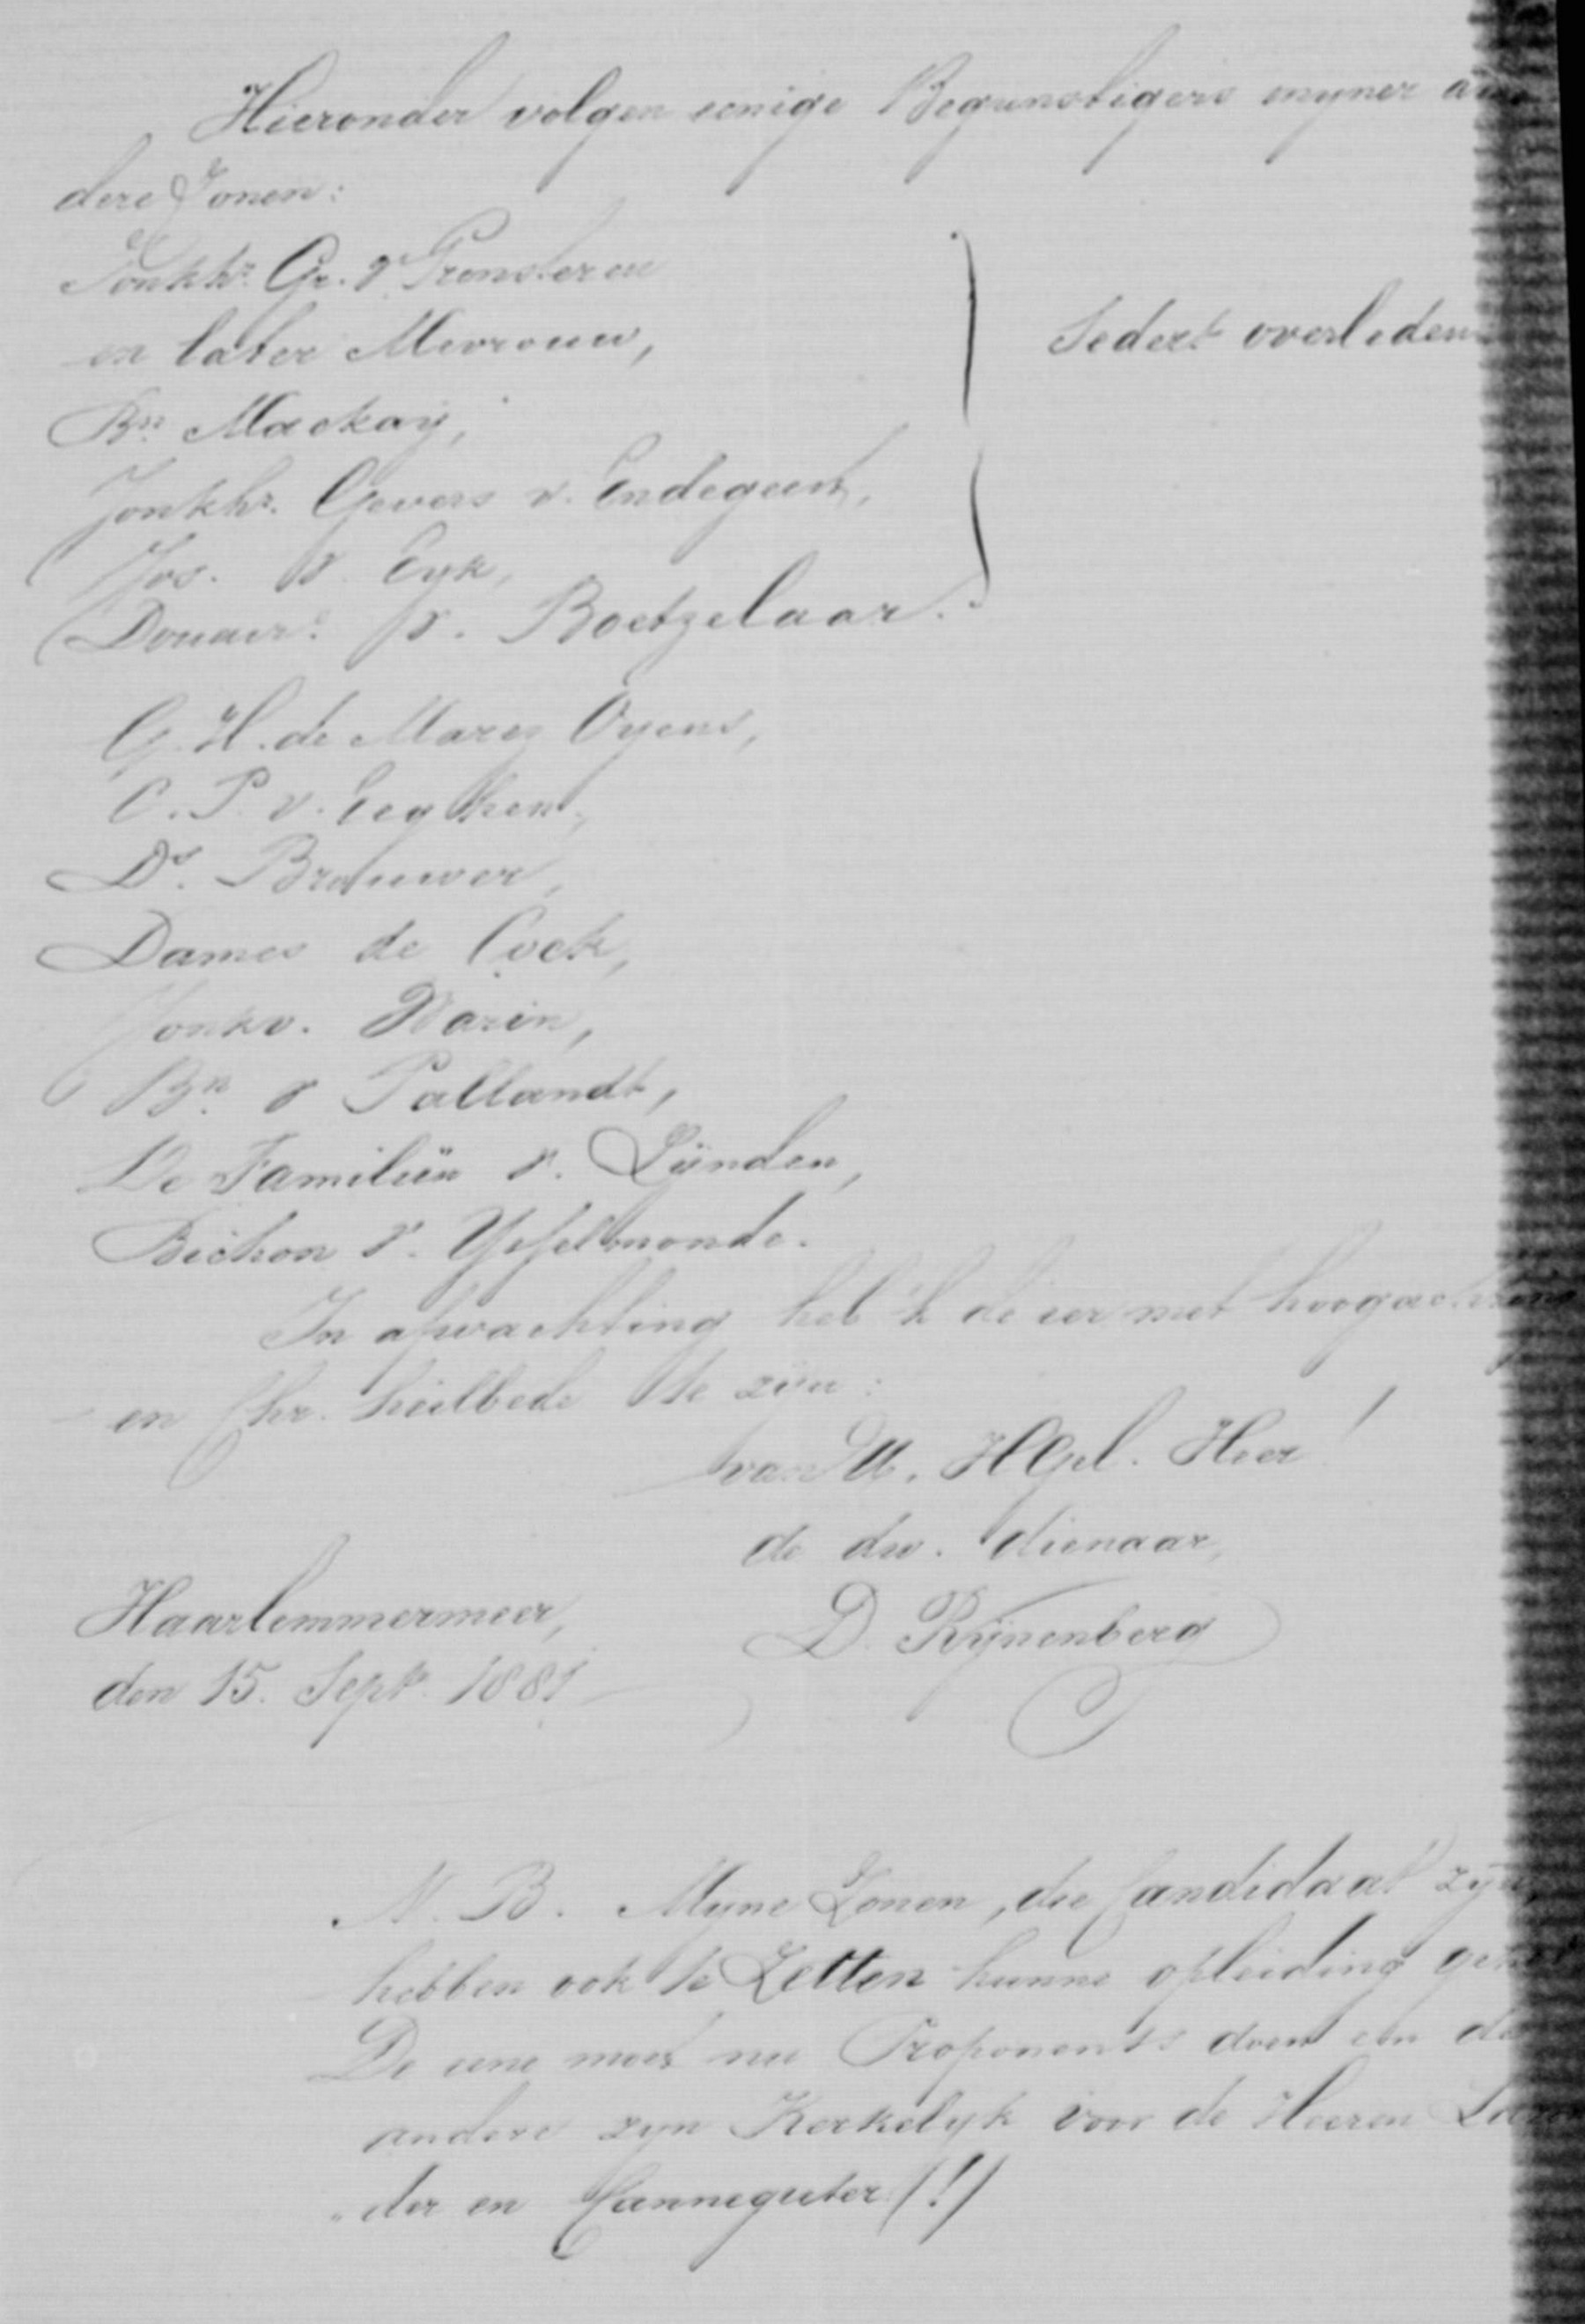 Hieronder volgen eenige Begunstigers myner an
dere Zonen:
Jonkhr. Gr. v. Prinsteren
en later Mevrouw,
Bn. Mackay,
Sedert overleden
Jonkhr. Gevers v. Endegeest,
Jos. v. Eyk,
Douair. v. Boetzelaar.
G. H. de Marez Oyens,
C. P. v. Eeghen,
Ds. Brouwer,
Dames de Cock,
Jonkv. Warin,
Bn. v Pallandt,
De Familiën v. Lijnden,
Bichon v. Ysselmonde.
In afwachting heb 'k de eer met hoogacht
en Chr. heilbede te zijn:
van U. HGel. Heer!
de dw. dienaar,
D. Rijnenberg
Haarlemmermeer,
den 15. Sept. 1881
N. B. Myne Zonen, die Candidaat zijn,
hebben ook te Zetten hunne opleiding
De eene moet nu Proponents doen en de
andere zyn Kerkelyk voor de Heeren
der en Cannegieter (!)